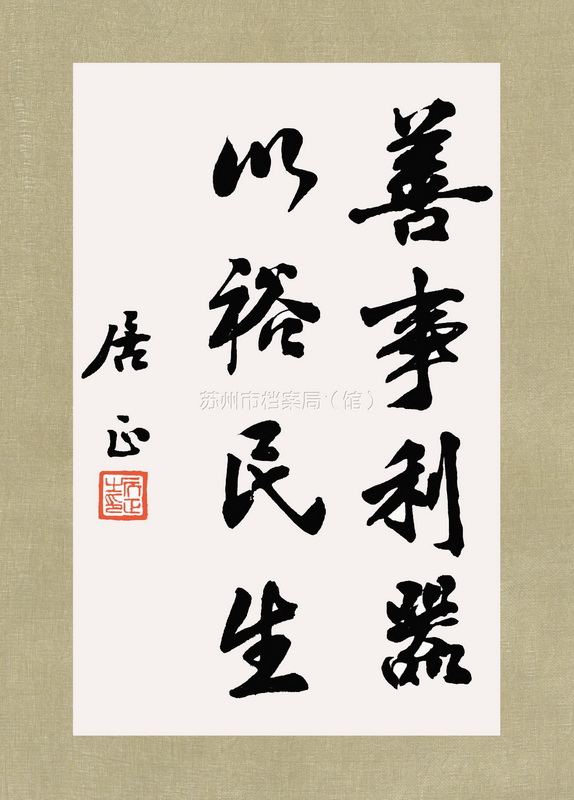 善事利器
以裕民生
居正
居正之印
苏州市档案局（馆）